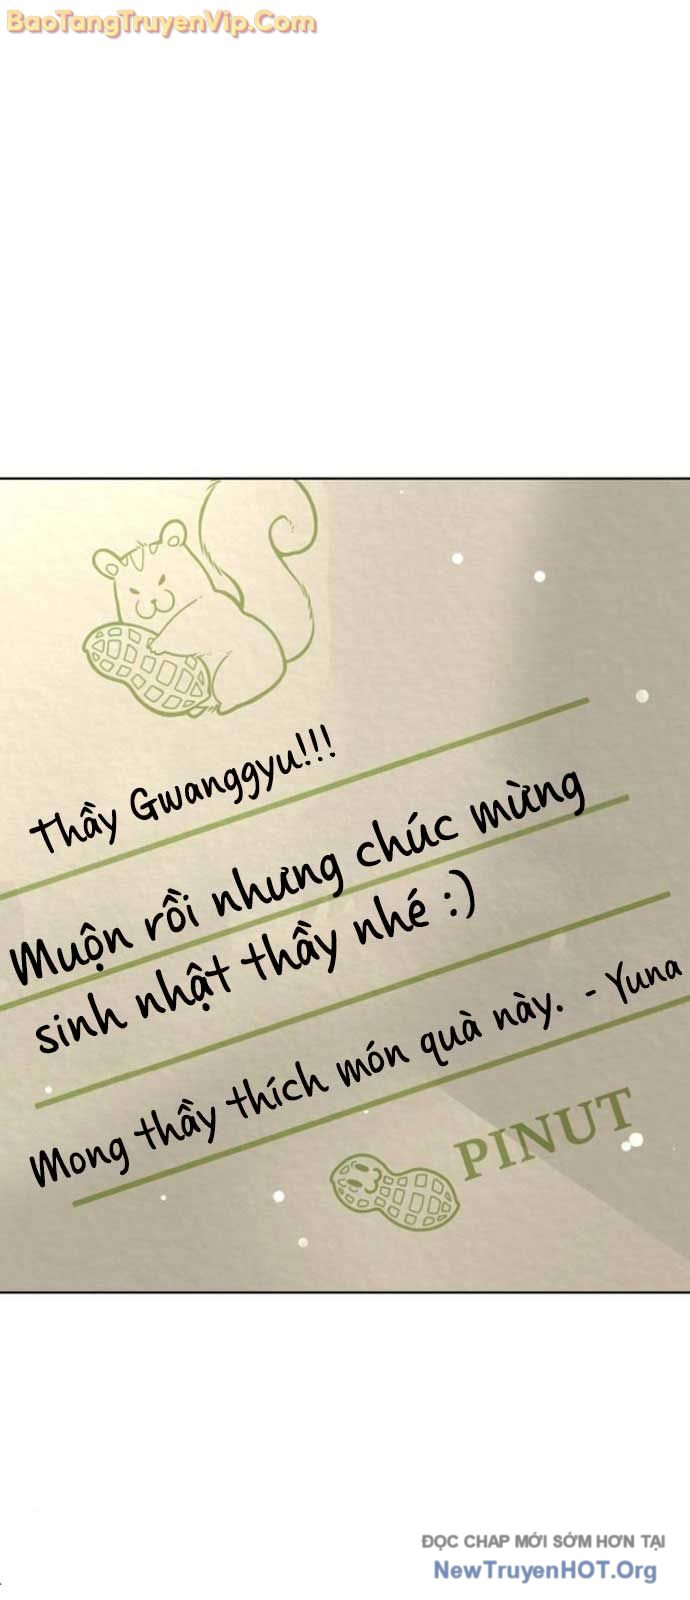 BaoTangTruyenVip.Com
Thầy Gwanggyu!!!
Muộn rồi nhưng chúc mừng
sinh nhật thầy nhé :)
Mong thầy thích món quà này. - Yuna
PINUT
ĐỌC CHAP MỚI SỚM HƠN TẠI
NewTruyenHOT.Org